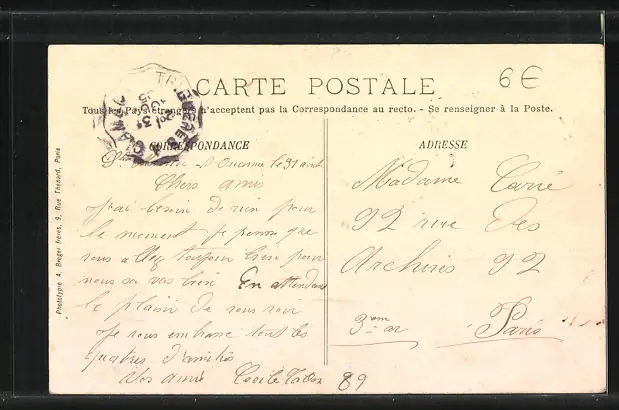 6€
CARTE POSTALE
Tous les Pays étrangers n'acceptent pas la Correspondance au recto. - Se renseigner à la Poste.
CORRESPONDANCE
le 31 août
Chers amis
j'ai besoin de rien pour
le moment je pense que
vous allez toujour bien pour
nous sa vas bien En attendant
le plaisir de vous voir
je vous embrasse tout les
quatres d'amitiés
Vos amie Cecile
89
ADRESSE
Madame Carié
92 rue Des
Archives 92
3em ar Paris
Phototypie A. Breger frères, 9, Rue Thénard, Paris